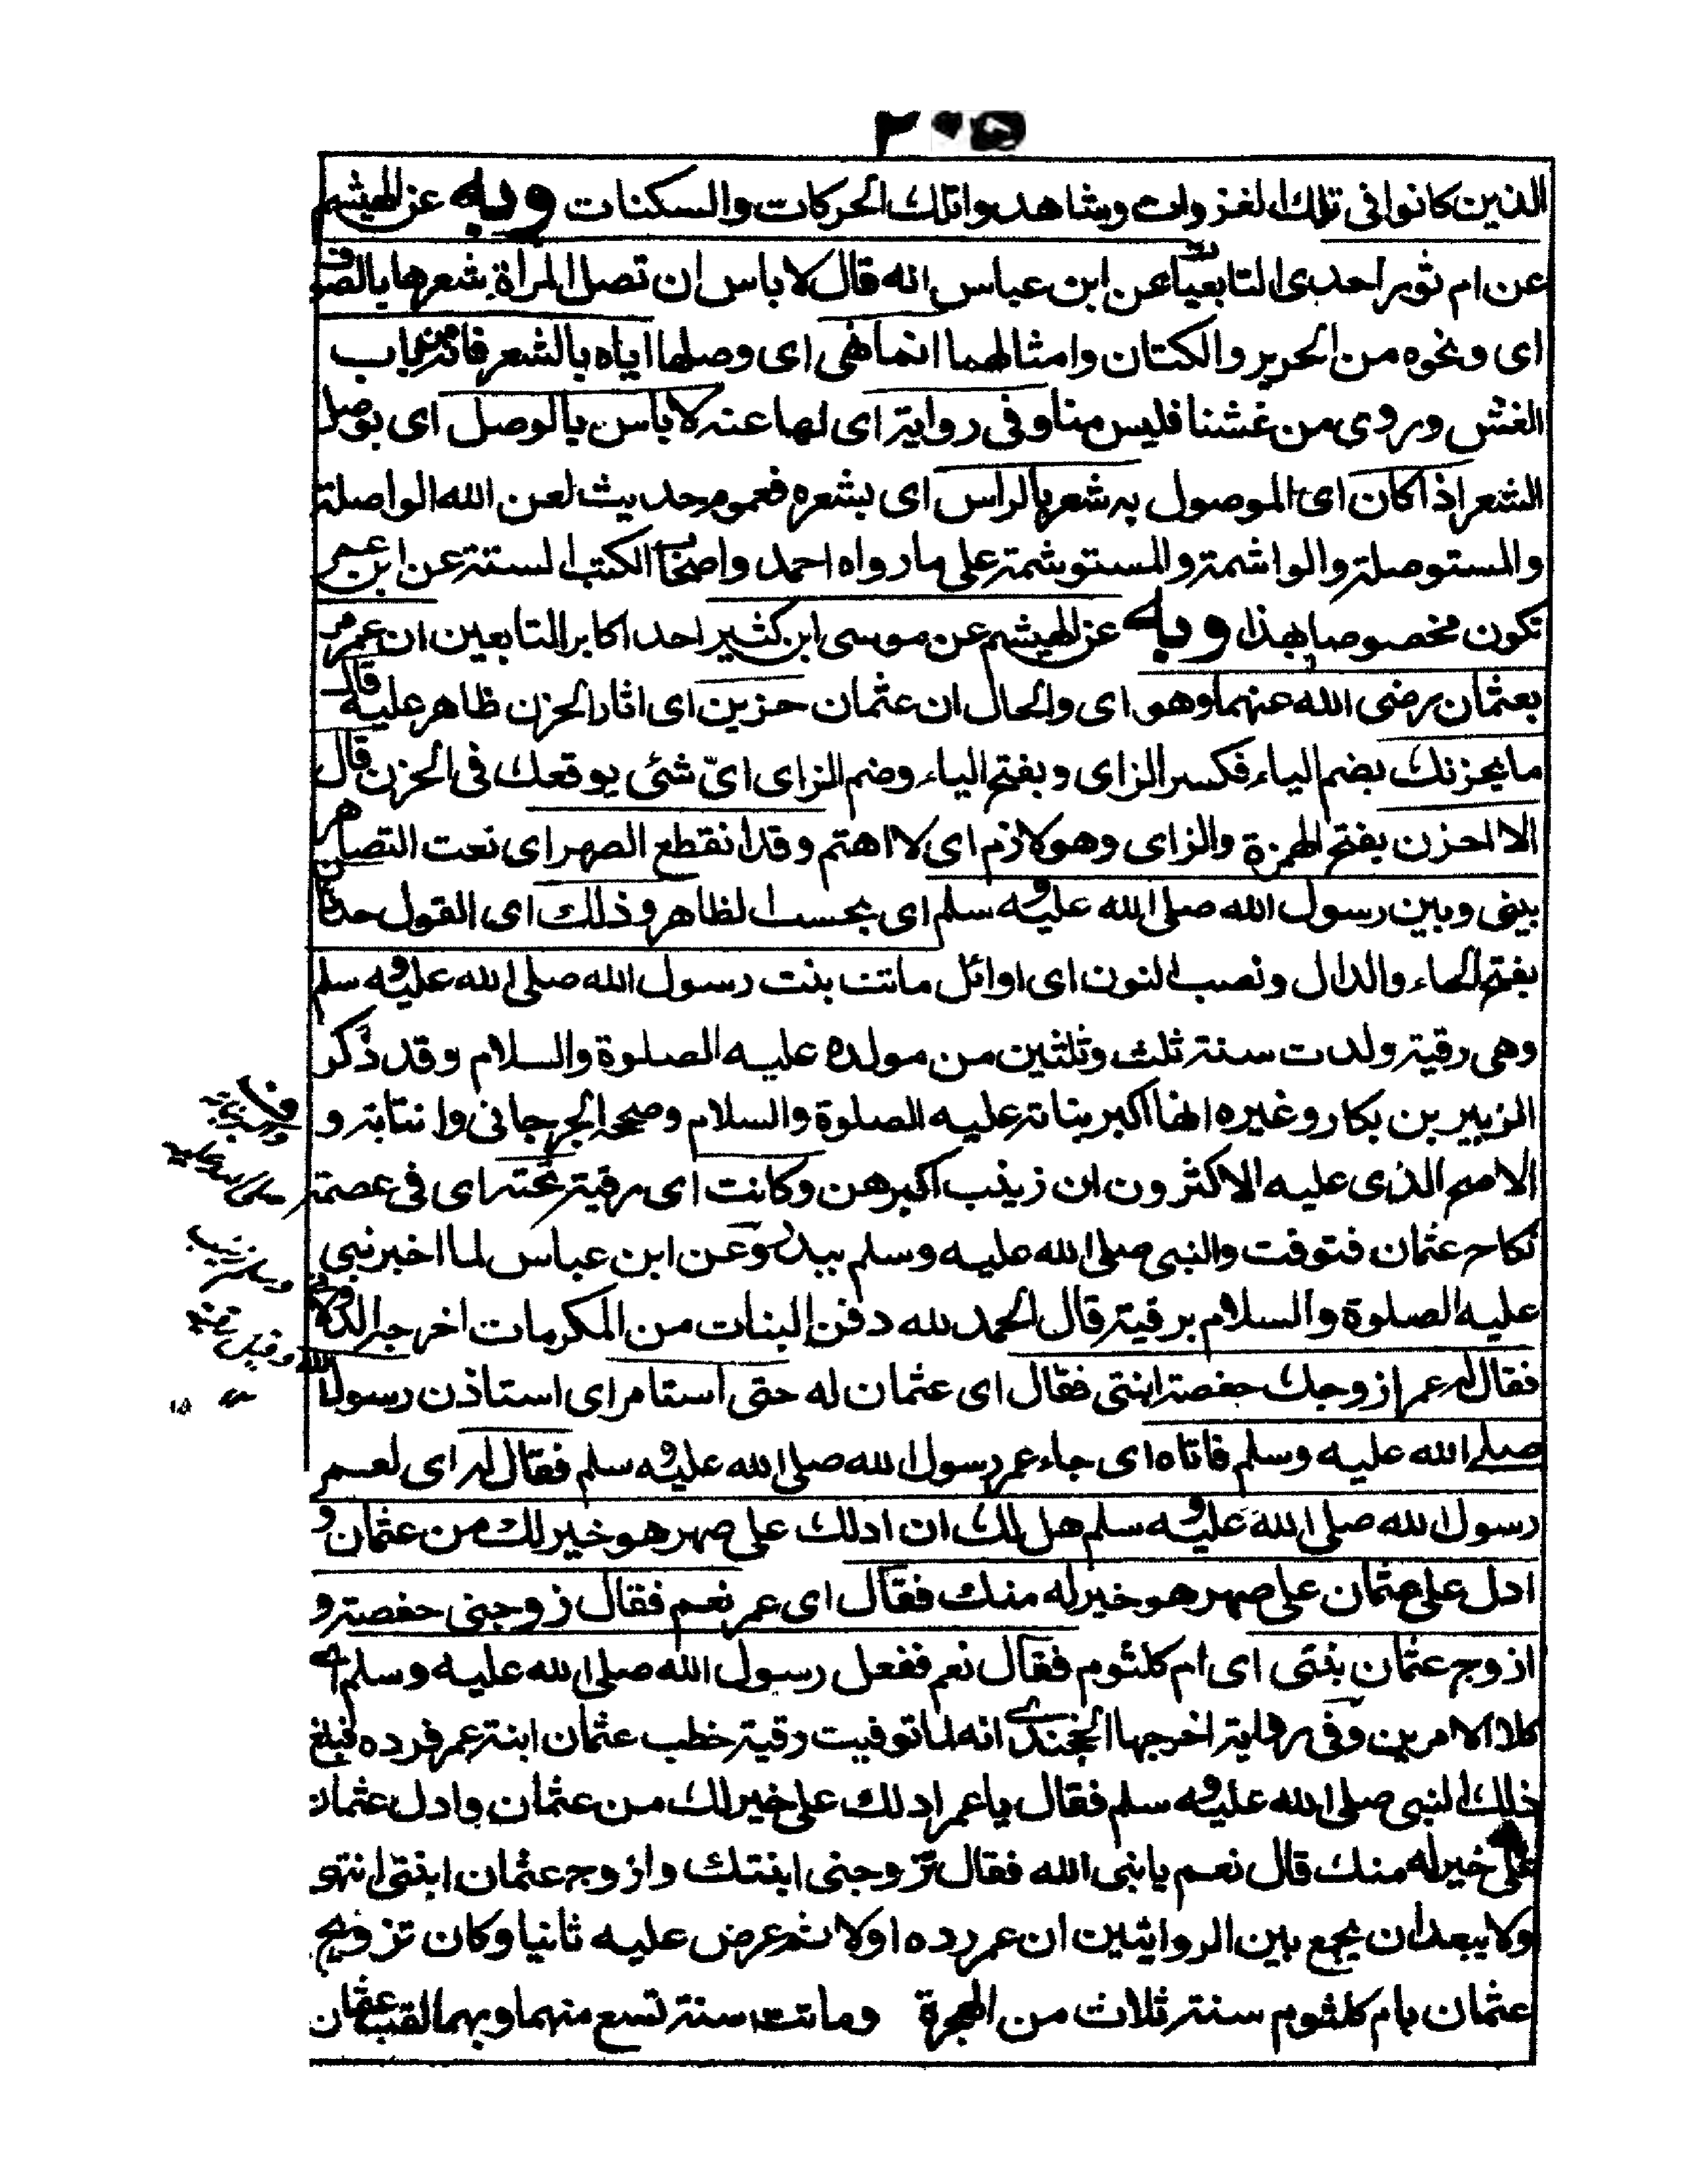 الذين كانوا فى تلك الغزوات وشاهدوا تلك الحركات والسكنات وبه عن الهيثم
عن ام ثور احدى التابعيات عن ابن عباس انه قال لا باس ان تصل المراة شعرها بالصوف
اى ونحوه من الحرير والكتان وامثالهما انما نهى اى وصلها اياه بالشعر فانه من باب
الغش وروى من غشنا فليس منا وفى رواية اى لها عنه لا باس بالوصل اى بوصل
الشعر اذا كان اى الموصول به شعر بالراس اى بشعره فعموم حديث لعن الله الواصلة
والمستوصلة والواشمة والمستوشمة على ما رواه احمد واصحاب الكتب الستة عن ابن عمر
تكون مخصوصا بهذا وبه عن الهيثم عن موسى ابن كثير احد اكابر التابعين ان عمر مر
بعثمان رضى الله عنهما وهو اى والحال ان عثمان حزين اى اثار الحزن ظاهر عليه قال
ما يحزنك بضم الياء فكسر الزاى وبفتح الياء وضم الزاى اىّ شئى يوقعك فى الحزن قال
الا احزن بفتح الهمزة والزاى وهو لازم اى لا اهتم وقد انقطع الصهر اى نعت التصاهر
بينى وبين رسول الله صلى الله عليه وسلم اى بحسب الظاهر وذلك اى القول حدثان
بفتح الحاء والدال ونصب النون اى اوائل ماتت بنت رسول الله صلى الله عليه وسلم
وهى رقية ولدت سنة ثلث وثلثين من مولده عليه الصلوة والسلام وقد ذكر
الزبير بن بكار وغيره انها اكبر بناته عليه الصلوة والسلام وصححه الجرجانى وانتابه و
الاصح الذى عليه الاكثرون ان زينب اكبرهن وكانت اى رقية تحته اى فى عصمة
نكاح عثمان فتوفت والنبى صلى الله عليه وسلم ببدر وعن ابن عباس لما اخبر نبى
عليه الصلوة والسلام برقية قال الحمد لله دفن البنات من المكرمات اخرجه الدولابى
فقال له عمر ازوجك حفصة ابنتى فقال اى عثمان له حتى استامر اى استاذن رسول الله
صلى الله عليه وسلم فاتاه اى جاء عمر رسول الله صلى الله عليه وسلم فقال له اى لعمر
رسول الله صلى الله عليه وسلم هل لك ان ادلك على صهر هو خير لك من عثمان و
ادل على عثمان على صهر هو خير له منك فقال اى عمر نعم فقال زوجنى حفصة و
ازوج عثمان بنتى اى ام كلثوم فقال نعم ففعل رسول الله صلى الله عليه وسلم اى
كلا الامرين وفى رواية اخرجها الخجندى انه لما توفيت رقية خطب عثمان ابنة عمر فرده فبلغ
ذلك النبى صلى الله عليه وسلم فقال يا عمر ادلك على خير لك من عثمان وادل عثمان
على خير له منك قال نعم يا نبى الله فقال تزوجنى ابنتك وازوج عثمان ابنتى انتهى
ولا يبعد ان يجمع بين الروايتين ان عمر رده اولا ثم عرض عليه ثانيا وكان تزويج
عثمان بام كلثوم سنة ثلاث من الهجرة وماتت سنة تسع منهما وبهما لقب عثمان